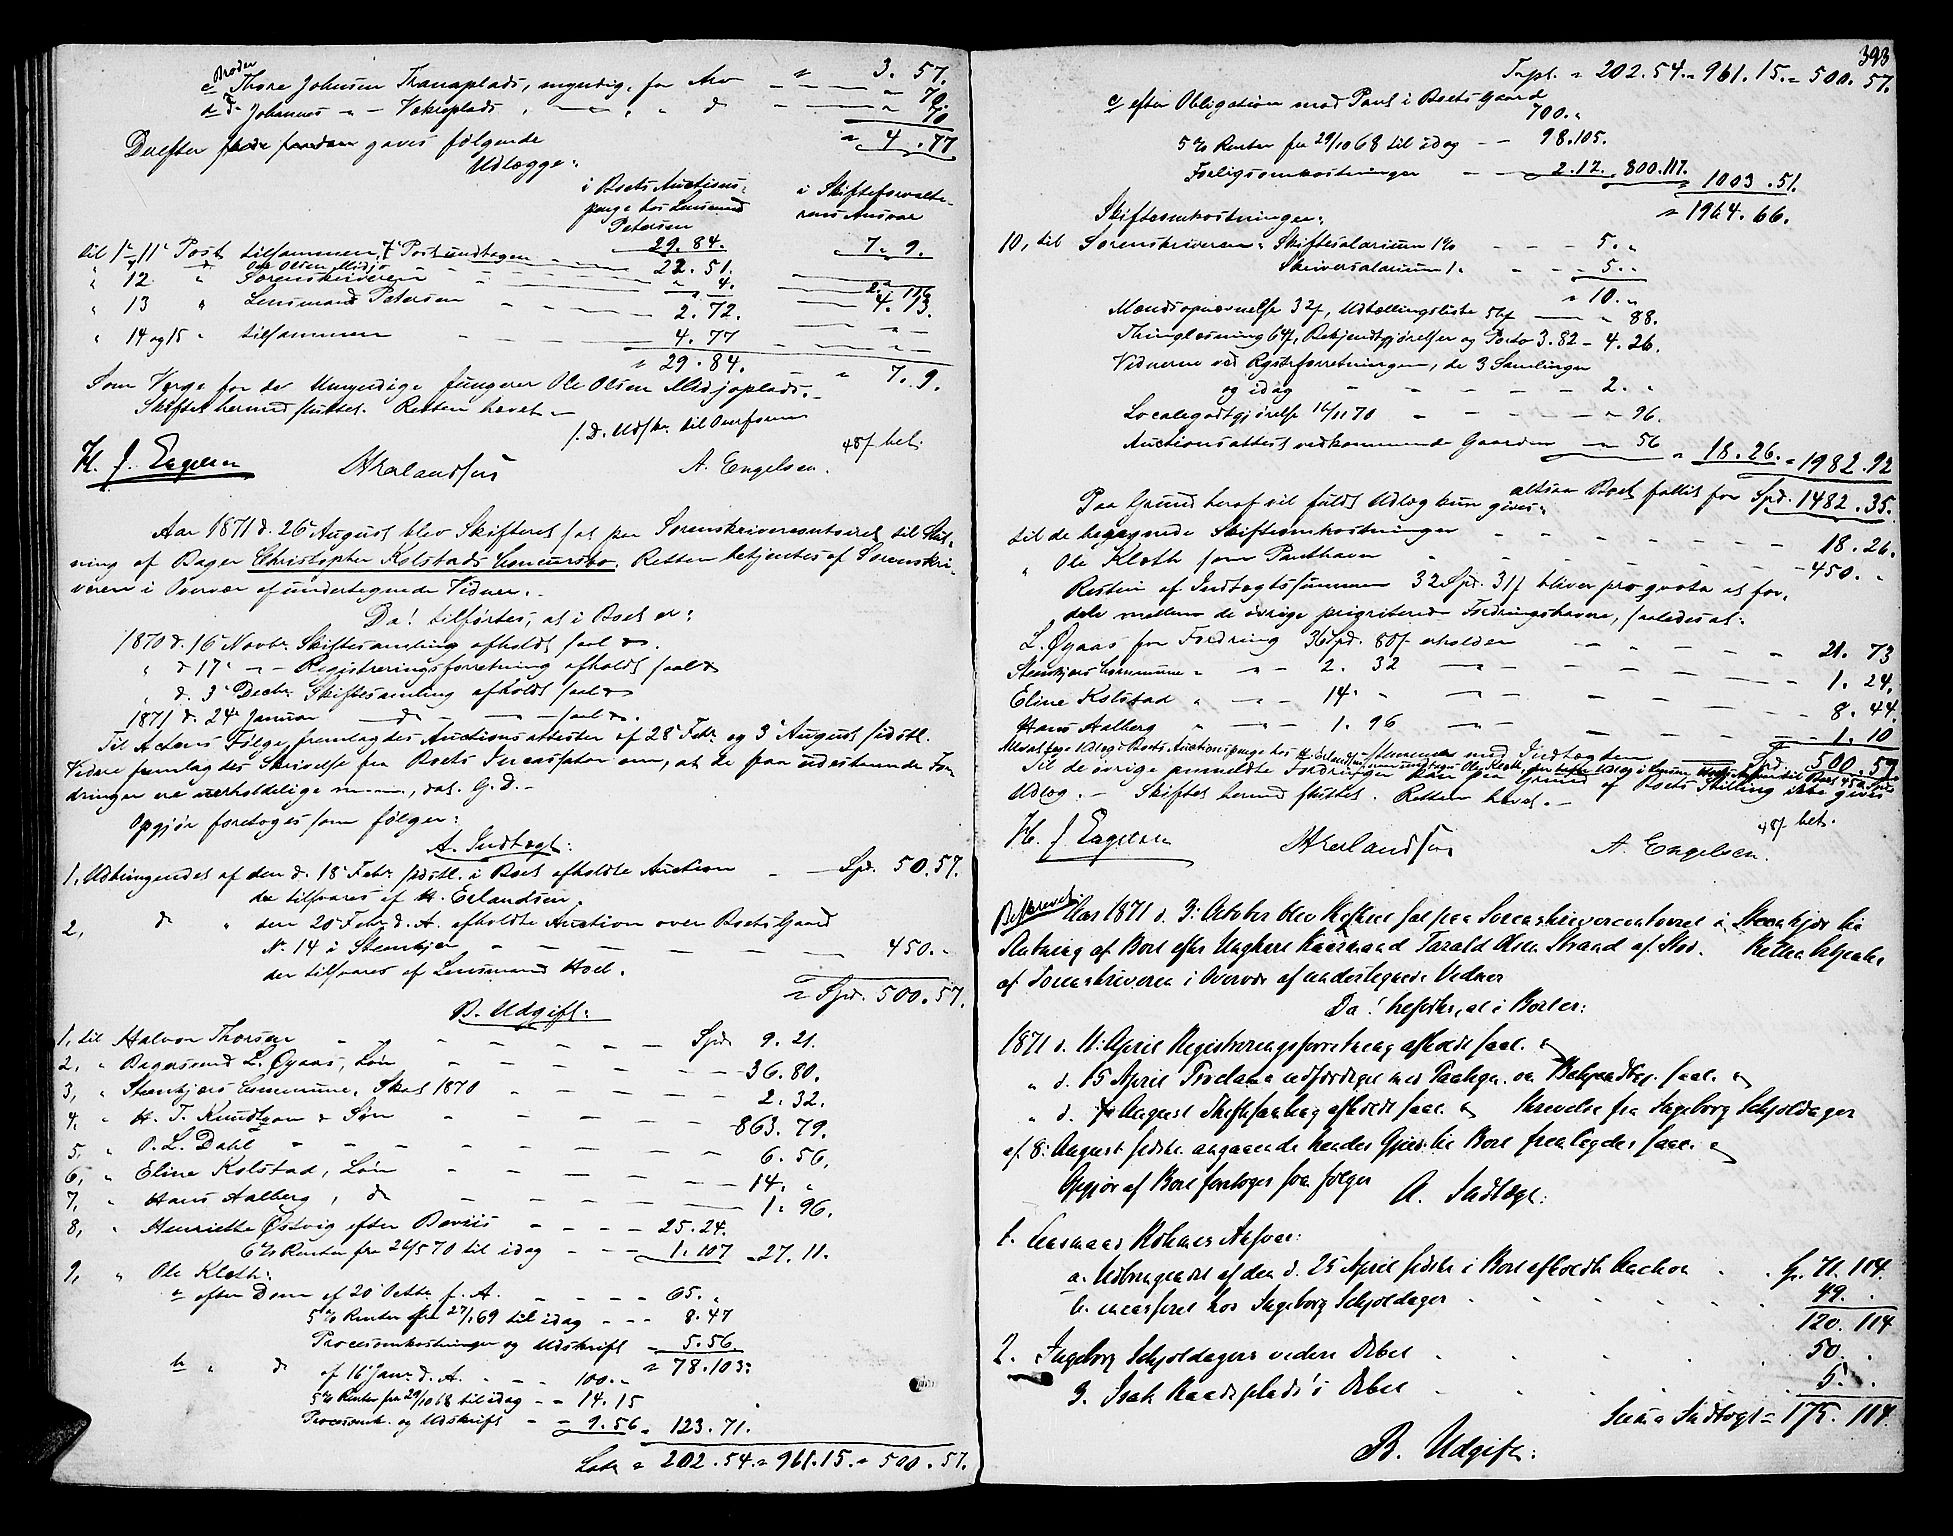 Broder
c Thore Johnsen Tranaplads, myndig, for Arv — " 3. 57.
d d. Johannes — — Vekreplads, — — " d — — 70.
" 4. 77
Derefter gaves følgende
Udlægge:
i Boets Auctions-
penge hos Lensmand
Petersen
i Skifteforvalte-
rens Ansvar
til 1-11 Post tilsammen, 7 Post undtagen — 29. 84. 7. 9.
" 7 d. Ole Olsen Midjo — 22. 51.
" 12 " Sorenskriveren — " 4. 2. 116
" 13 " Lensmand Petersen — 2. 72. 4. 13.
" 14 og 15 " tilsammen — 4. 77 — " —
" 29. 84. " 7. 9.
Som Værge for de Umyndige fungerer Ole Olsen Midjoplads.
Skiftet hermed sluttet. Retten hævet.
f. D. Udskr. til Overform
48 f bet.
H. J. Engelsen HErlandsen A. Engelsen.
Aar 1871 d. 26 August blev Skifteret sat paa Sorenskriverembedet til Slut-
ning af Bager Christopher Kolstads Concursbo. Retten betjentes af Sorenskri-
veren i Overvær af undertegnede Vidner.
Da! tilførtes, at i Boet er:
1870 d. 16 Novbr. Skiftesamling afholdt saal.
" d 17 " — Registreringsforretning afholdt saal.
" d. 3 Decbr. Skiftesamling afholdt saal.
1871 d. 24 Januar — d — — saal.
Til Actens Følge fremlagdes Auctionsattester af 28 Febr. og 3 August sidstl.
Videre fremlagdes Skrivelse fra Boets Incassator om, at de paa udestaaende For-
dringer ere uerholdelige, dat. G. D.
Opgjør foretoges som følger:
A. Indtægt:
1, Udbringendet af den d. 18 Febr. sidstl. i Boet afholdte Auction — Spd. 50. 57.
der tilsvares af H. Erlandsen
2, d " den 20 Febr. d. A. afholdte Auction over Boets Gaard
No. 14 i Stenkjær — — — 450. "
der tilsvares af Lensmand Hoel.
" Spd. 500. 57.
B. Udgift:
1, til Halvor Thorsen — Spd. 9. 21.
2, " Bagersvend L. Øyaas, Løn — 36. 80.
3, " Stenkjærs Commune, Skat 1870 — 2. 32.
4, " H. T. Knudtzon & Søn — 863. 79.
5, " P. L. Dahl — 6. 56.
6, " Eline Kolstad, Løn — 14. "
7, " Hans Aalberg, d — 1. 96.
8, " Henriette Østvig efter Beviis — 25. 24.
6 % Renter fra 26/5 70 til idag — 1. 107 — 27. 11.
9, " Ole Kleth:
a efter Dom af 20 Octbr. f. A. — 65. "
5 % Renter fra 27/1 69 til idag — 8. 47
Procesomkostninger og Udskrift — 5. 56.
" 78. 103.
b " d af 16 Janr. d. A. — 100. "
5 % Renter fra 29/10 68 til idag — 14. 15
Procesomk. og Udskrift — 9. 56 " 123. 71.
Lat. " 202. 54. " 961. 15. " 500. 57.
393
Trpt. " 202. 54. " 961. 15. " 500. 57.
c efter Obligation med Pant i Boets Gaard
700. "
5 % Renter fra 29/10 68 til idag — 98. 105.
Forligsomkostninger — 2. 12. 800. 117.
" 1003. 51.
" 1964. 66.
Skifteomkostninger:
10, til Sorenskriveren " Skiftesalarium 1 % — 5. "
Skriversalarium 1. — 5. "
" 10. "
Mandsopnævnelse 32 f, Udtællingsliste 56 f — " 88.
Thinglæsning 64 f, Bekjendtgjørelser og Porto 3. 82 — 4. 26.
Vidnerne ved Rgstrforretningen, de 3 Samlinger
og idag — 2. "
Localegodtgjørelse 16/11 70 — " 96.
Auctionsattest vedkommende Gaarden — " 56 " 18. 26. " 1982. 92
altsaa Boet fallit for Spd. 1482. 35.
Paa Grund heraf vil fuldt Udlæg kun gives:
til de begegnede Skifteomkostninger — 18. 26.
" Ole Kleth som Panthaver — 450. "
Resten af Indtægtssummen 32 Spd. 31 f bliver pro quota at for-
dele mellem de øvrige prioriterede Fordringshavere, saaledes at:
L. Øyaas for Fordring 36 Spd. 80 f erholder — 21. 73
Stenkjærs Commune " — 2. 32 — 1. 24.
Eline Kolstad " — 14. " — 8. 44.
Hans Aalberg " — 1. 96 — 1. 10
Stemmer med Indtægten — Spd. 500. 57
Til de øvrige anmeldte Fordringer kan paa Grund af Boets Stilling ikke gives
Udlæg. — Skiftet hermed sluttet. Retten hævet. —
48 f bet.
H. J. Engelsen HErlandsen A. Engelsen.
Beskrevet
Aar 1871 d. 3: October blev Skifteret sat paa Sorenskrivercontoret i Steenkjær til
Slutning af Boet efter Ungkarl Taxald Olsen Strand af Stod. Retten betjentes
af Sorenskriveren i Overvær af undertegnede Vidner
Da! tilførtes, at i Boet er:
1871 d. 11: April Registreringsforretning afholdt saal.
" d. 15 April Proclama udfærdiget med Paategn. om Bekjendtgj. saal.
" d. August Skiftesamling afholdt saal. Skrivelse fra Ingeborg Schjoldager
af 8: August sidstl. angaaende hendes Gjæld til Boet fremlagdes saal.
Opgjør af Boet foretoges saa følger
A. Indtægt:
1. Lensmand Holmes Ansvar:
a. Udbringendet af den d. 25 April sidstl. i Boet afholdte Auction Sp. 71. 114.
b. incasseret hos Ingeborg Schjoldager 49. "
120. 114
2. Ingeborg Schjoldagers videre Debet 50. "
3. Isak Raadsplads's Debet 5. "
Summa Indtægt " 175. 114.
B. Udgift: